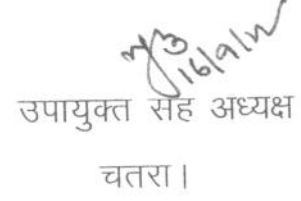 16/9/12
उपायुक्त सह अध्यक्ष
चतरा।